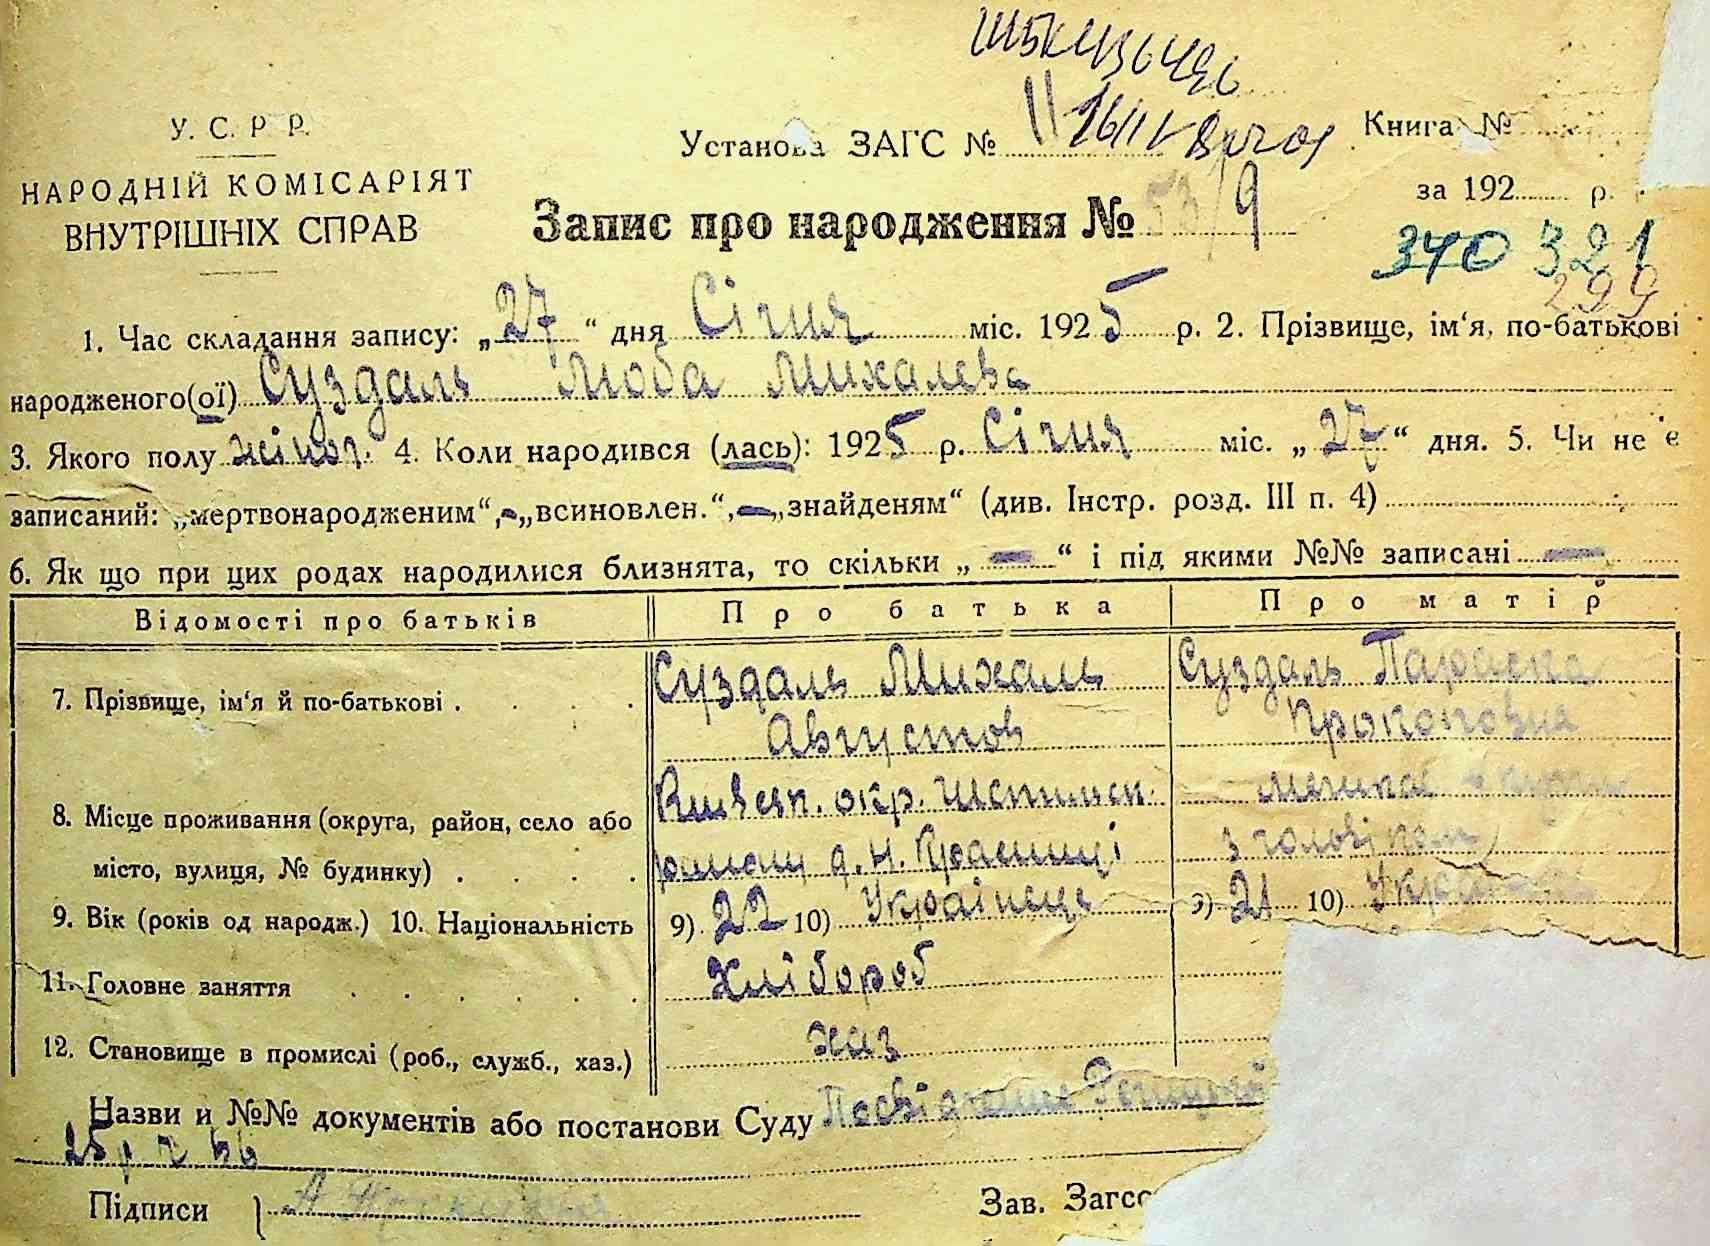 У. С. Р Р.
НАРОДНІЙ КОМІСАРІЯТ
ВНУТРІШНІХ СПРАВ
Установа ЗАГС № 11
Книга №
за 192 р.
Запис про народження № 53/9
340 321
299
1. Час складання запису: „27“ дня Січня міс. 1925 р. 2. Прізвище, ім‘я, по-батькові
народженого(ої) Суздаль Люба Михалева
3. Якого полу жіноч. 4. Коли народився (лась): 1925 р. Січня міс. „27“ дня. 5. Чи не є
записаний: „мертвонародженим“, – „всиновлен.“, – „знайденям“ (див. Інстр. розд. III п. 4)
6. Як що при цих родах народилися близнята, то скільки „ — “ і під якими №№ записані —
Відомості про батьків Про батька Про матір
7. Прізвище, ім‘я й по-батькові . Суздаль Михаль Августов Суздаль Параска Прокоповна
8. Місце проживання (округа, район, село або місто, вулиця, № будинку) . окр. району д. Н. з чоловіком
9. Вік (років од народж.) 10. Національність 9) 22 10) Українець 9) 21 10)
11. Головне заняття Хлібороб
12. Становище в промислі (роб., служб., хаз.) хаз
Назви и №№ документів або постанови Суду Посвідчення
25 р ч
Підписи
Зав. Загсо